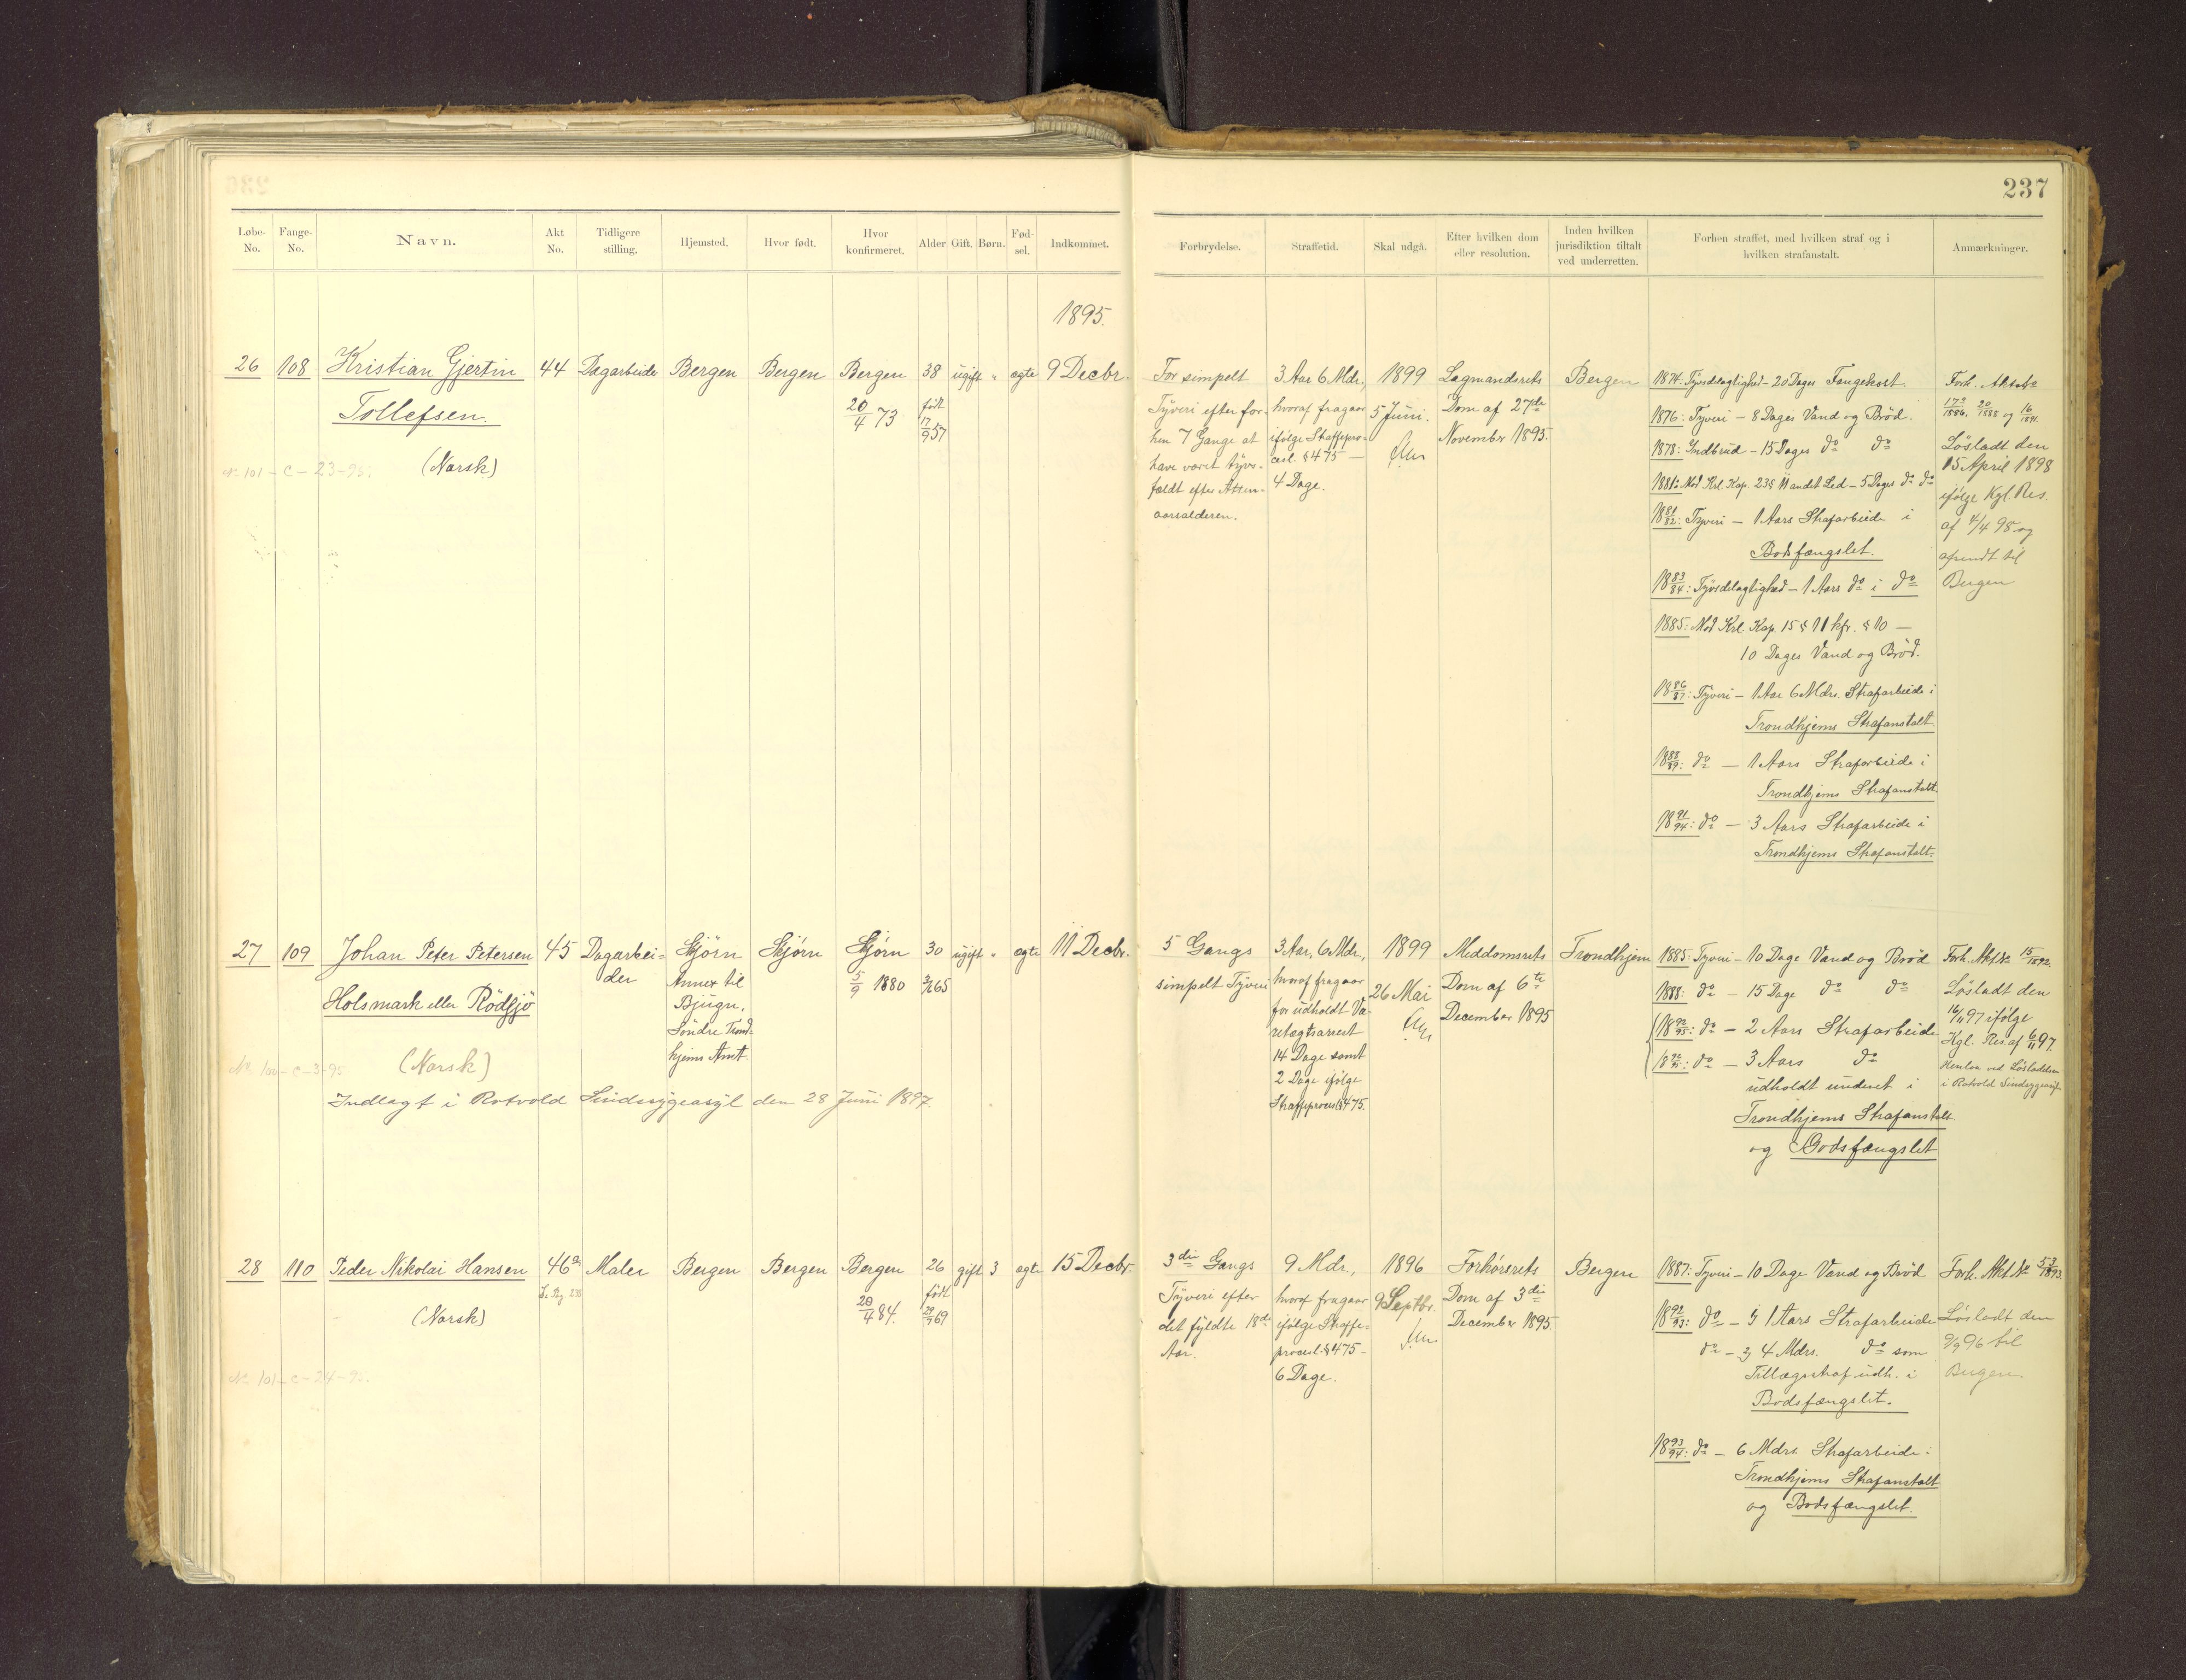 237
Løbe-No.
Fange-No.
Navn.
Akt No.
Tidligere stilling.
Hjemsted.
Hvor født.
Hvor konfirmeret.
Alder
Gift.
Børn.
Fød-sel.
Indkommet.
Forbrydelse.
Straffetid.
Skal udgå.
Efter hvilken dom eller resolution.
Inden hvilken jurisdiktion tiltalt ved underretten.
Forhen straffet, med hvilken straf og i hvilken strafanstalt.
Anmærkninger.
1895.
26
108
Kristian Gjertin
Tollefsen.
(Norsk)
No 101-C-23-95.
44
Dagarbeider
Bergen
Bergen
Bergen
20/4 73
38
født
17/9 57
ugift
"
ægte
9 Decbr.
For simpelt
Tyveri efter for-
hen 7 Gange at
have været tyvs-
fældt efter Atten-
aarsalderen.
3 Aar 6 Mdr.,
hvoraf fragaar
ifølge Straffepro-
cesl. § 475 —
4 Dage.
1899
5 Juni.
Lagmandsrets
Dom af 27de
November 1895.
Bergen
1874: Tyvsdelagtighed - 20 Dages Fangekost.
1876: Tyveri - 8 Dages Vand og Brød.
1878: Indbrud - 15 Dages do do
1881: Mod Krl. Kap. 23 § 11 andet Led - 5 Dages do do
1881/82: Tyveri - 1 Aars Strafarbeide i
Bodsfængslet.
1883/84: Tyvsdelagtighed - 1 Aars do i do
1885: Mod Krl. Kap. 15 § 11 kfr. § 10 —
10 Dages Vand og Brød.
1886/87: Tyveri - 1 Aar 6 Mdrs. Strafarbeide i
Trondhjems Strafanstalt.
1888/89: do - 1 Aars Strafarbeide i
Trondhjems Strafanstalt.
1891/94: do - 3 Aars Strafarbeide i
Trondhjems Strafanstalt.
Forh. Akt No
173/1886, 20/1888 og 16/1891.
Løsladt den
15 April 1898
ifølge Kgl. Res.
af 4/4 98 og
afsendt til
Bergen
27
109
Johan Peter Petersen
Holsmark eller Rødsjø
(Norsk)
No 100-C-3-95
Indlagt i Rotvold Sindssygeasyl den 28 Juni 1897.
45
Dagarbei-
der
Skjørn
Annex til
Bjugn,
Søndre Trond-
hjems Amt.
Skjørn
Skjørn
5/9 1880
30
65
ugift
"
ægte
11 Decbr.
5 Gangs
simpelt Tyveri
3 Aar, 6 Mdr.,
hvoraf fragaar
for udholdt Va-
retægtsarrest
14 Dage samt
2 Dage ifølge
Straffeprocesl. § 475.
1899
26 Mai
Meddomsrets
Dom af 6te
December 1895
Trondhjem
1885: Tyveri - 10 Dage Vand og Brød
1888: do - 15 Dage do do
do - 2 Aars Strafarbeide
do - 3 Aars do
udholdt under et i
Trondhjems Strafanstalt
og Bodsfængslet
Forh. Akt No 15/1892.
Løsladt den
16/11 97 ifølge
Kgl. Res. af 6/11 97.
Henlaa ved Løsladelsen
i Rotvold Sindssygeasyl.
28
110
Peder Nikolai Hansen
(Norsk)
No 101-C-24-95.
46a
Se Pag. 238
Maler
Bergen
Bergen
Bergen
20/4 84.
26
født
69
gift
3
ægte
15 Decbr.
3die Gangs
Tyveri efter
det fyldte 18de
Aar.
9 Mdr.,
hvoraf fragaar
ifølge Straffe-
procesl. § 475 -
6 Dage.
1896
9 Septbr.
Forhørsrets
Dom af 3die
December 1895.
Bergen
1887: Tyveri - 10 Dage Vand og Brød
1892/93: do - 1) 1 Aars Strafarbeide
do - 2) 4 Mdrs. do som
Tillægsstraf udh. i
Bodsfængslet.
1893/94: do - 6 Mdrs Strafarbeide i
Trondhjems Strafanstalt
og Bodsfængslet.
Forh. Akt No 53/1893.
Løsladt den
9/9 96 til
Bergen.